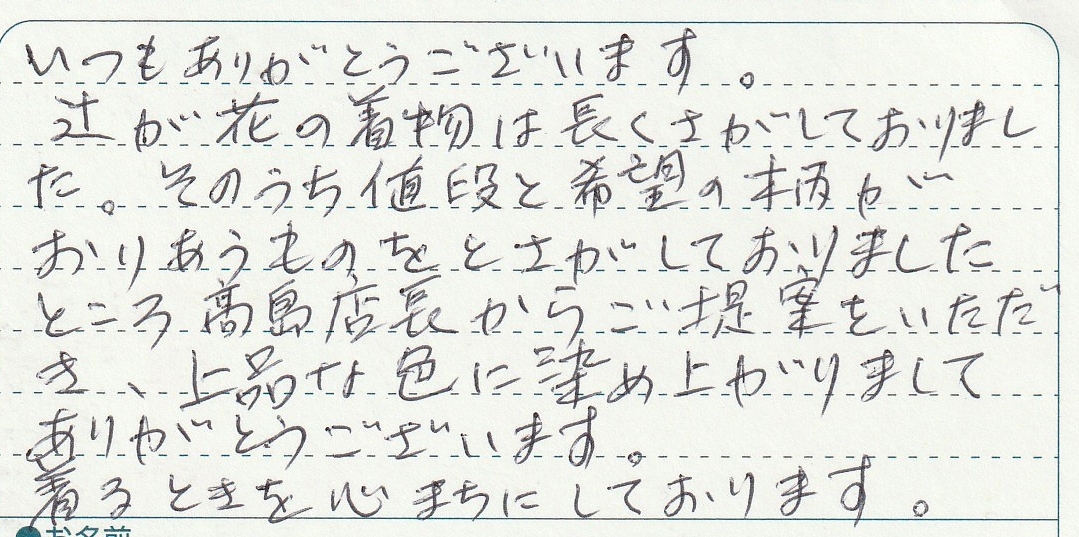 いつもありがとうございます。
辻が花の着物は長くさがしておりまし
た。そのうち値段と希望の柄が
おりあうものをとさがしておりました
ところ高島店長からご提案をいただ
き、上品な色に染め上がりまして
ありがとうございます。
着るときを心まちにしております。
●お名前